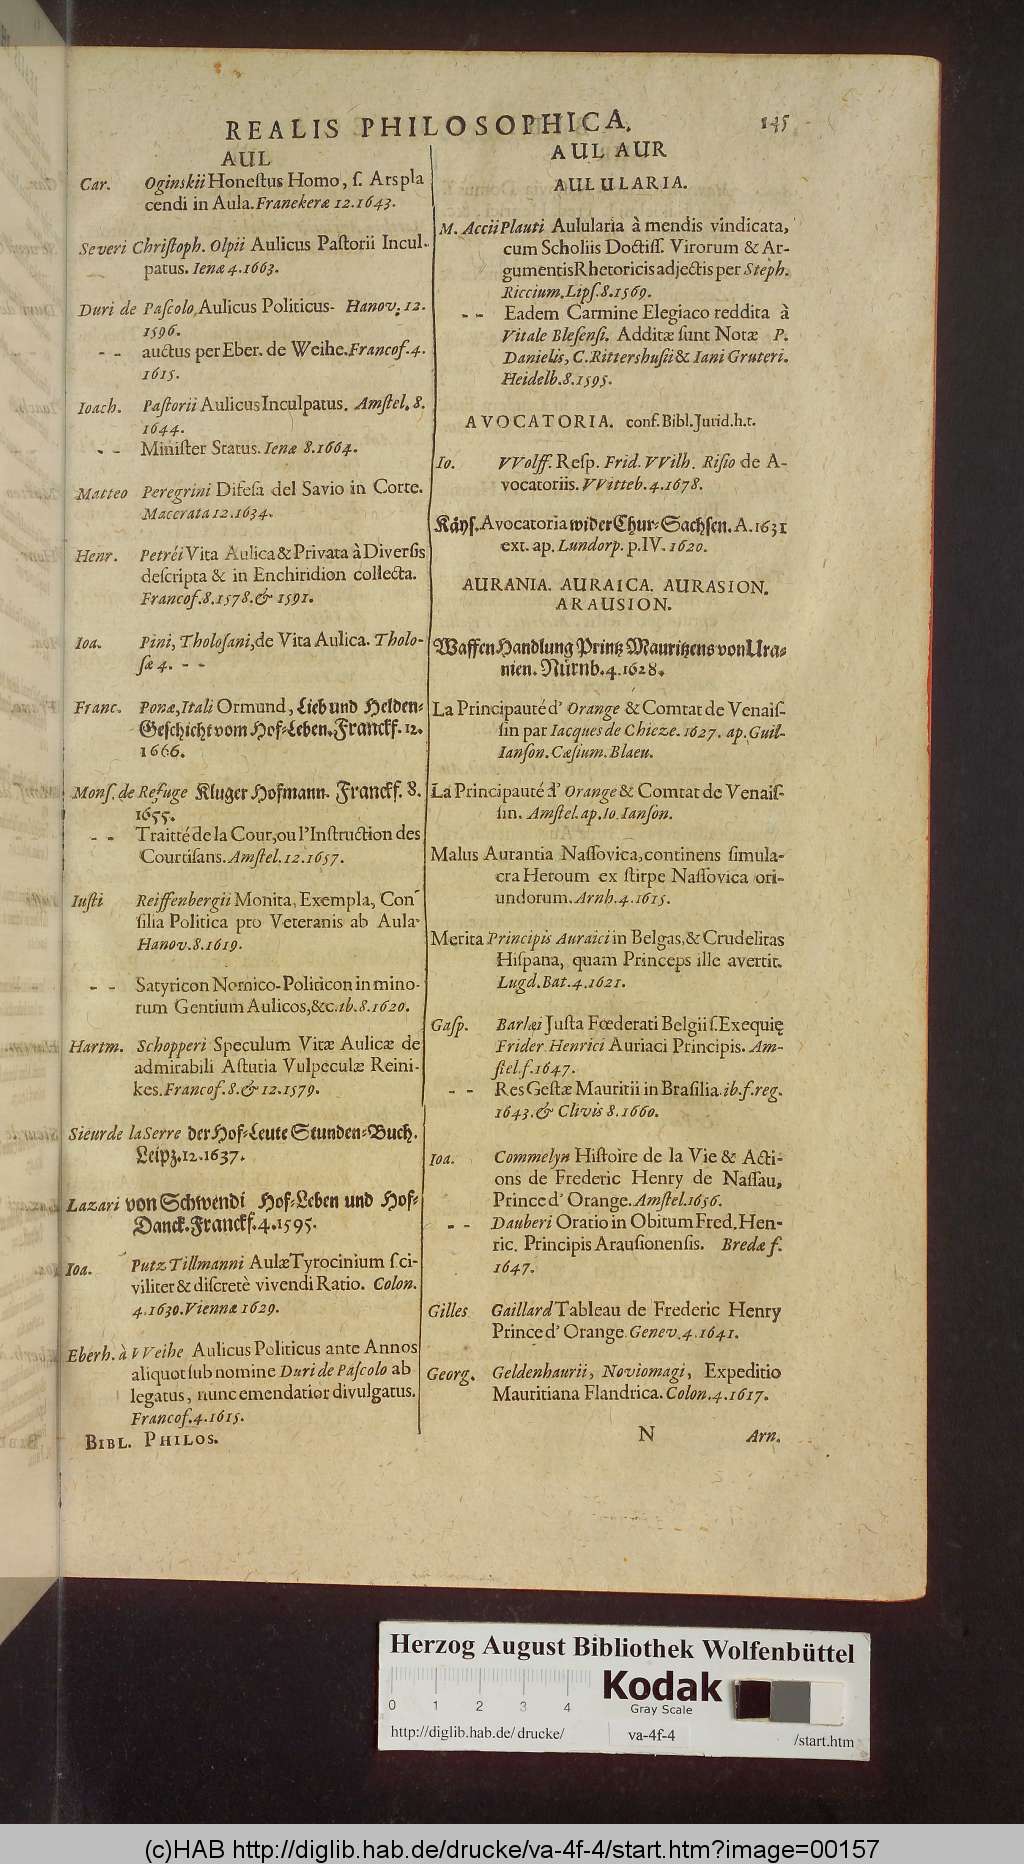 REALIS PHILOSOPHICA. 145
AUL
Car. Oginskii Honestus Homo, ſ. Ars pla
cendi in Aula. Franekeræ 12. 1643.
Severi Chriſtoph. Olpii Aulicus Paſtorii Incul-
patus. Ienæ 4. 1663.
Duri de Paſcolo, Aulicus Politicus- Hanov. 12.
1596.
- - auctus per Eber. de Weihe. Francof. 4.
1615.
Ioach. Paſtorii Aulicus Inculpatus. Amſtel. 8.
1644.
- - Miniſter Status. Ienæ 8. 1664.
Matteo Peregrini Difeſa del Savio in Corte.
Macerata 12. 1634.
Henr. Petréi Vita Aulica & Privata à Diverſis
deſcripta & in Enchiridion collecta.
Francof. 8. 1578. & 1591.
Ioa. Pini, Tholoſani, de Vita Aulica. Tholo-
ſæ 4. - -
Franc. Ponæ, Itali Ormund, Lieb und Helden-
Geſchicht vom Hof-Leben. Franckf. 12.
1666.
Monſ. de Refuge Kluger Hofmann. Franckf. 8.
1655.
- - Traitté de la Cour, ou l'Inſtruction des
Courtiſans. Amſtel. 12. 1657.
Iuſti Reiffenbergii Monita, Exempla, Con-
ſilia Politica pro Veteranis ab Aula-
Hanov. 8. 1619.
- - Satyricon Nornico-Politicon in mino-
rum Gentium Aulicos, &c. ib. 8. 1620.
Hartm. Schopperi Speculum Vitæ Aulicæ de
admirabili Aſtutia Vulpeculæ Reini-
kes. Francof. 8. & 12. 1579.
Sieur de la Serre der Hof-Leute Stunden-Buch.
Leipz. 12. 1637.
Lazari von Schwendi Hof-Leben und Hof-
Danck. Franckf. 4. 1595.
Ioa. Putz Tillmanni Aulæ Tyrocinium ſ ci-
viliter & diſcretè vivendi Ratio. Colon.
4. 1630. Viennæ 1629.
Eberh. à VVeihe Aulicus Politicus ante Annos
aliquot ſub nomine Duri de Paſcolo ab
legatus, nunc emendatior divulgatus.
Francof. 4. 1615.
BIBL. PHILOS.
AUL AUR
AULULARIA.
M. Accii Plauti Aulularia à mendis vindicata,
cum Scholiis Doctiſſ. Virorum & Ar-
gumentis Rhetoricis adjectis per Steph.
Riccium. Lipſ. 8. 1569.
- - Eadem Carmine Elegiaco reddita à
Vitale Bleſenſi. Additæ ſunt Notæ P.
Danielis, C. Rittershuſii & Iani Gruteri.
Heidelb. 8. 1595.
AVOCATORIA. conf. Bibl. Jurid. h. t.
Io. VVolff. Reſp. Frid. VVilh. Riſio de A-
vocatoriis. VVitteb. 4. 1678.
Käyſ. Avocatoria wider Chur-Sachſen. A. 1631
ext. ap. Lundorp. p. IV. 1620.
AURANIA. AURAICA. AURASION.
ARAUSION.
Waffen Handlung Printz Mauritzens von Ura-
nien. Nürnb. 4. 1628.
La Principauté d' Orange & Comtat de Venaiſ-
ſin par Iacques de Chieze. 1627. ap. Guil-
Ianſon. Cæſium. Blaeu.
La Principauté d' Orange & Comtat de Venaiſ-
ſin. Amſtel. ap. Io. Ianſon.
Malus Aurantia Naſſovica, continens ſimula-
cra Heroum ex ſtirpe Naſſovica ori-
undorum. Arnh. 4. 1615.
Merita Principis Auraici in Belgas, & Crudelitas
Hiſpana, quam Princeps ille avertit.
Lugd. Bat. 4. 1621.
Gaſp. Barlæi Juſta Fœderati Belgii ſ. Exequię
Frider. Henrici Auriaci Principis. Am-
ſtel. f. 1647.
- - Res Geſtæ Mauritii in Braſilia. ib. f. reg.
1643. & Clivis 8. 1660.
Ioa. Commelyn Hiſtoire de la Vie & Acti-
ons de Frederic Henry de Naſſau,
Prince d' Orange. Amſtel. 1656.
- - Dauberi Oratio in Obitum Fred. Hen-
ric. Principis Arauſionenſis. Bredæ f.
1647.
Gilles Gaillard Tableau de Frederic Henry
Prince d' Orange. Genev. 4. 1641.
Georg. Geldenhaurii, Noviomagi, Expeditio
Mauritiana Flandrica. Colon. 4. 1617.
N Arn.
Herzog August Bibliothek Wolfenbüttel
0 1 2 3 4
Kodak
Gray Scale
http://diglib.hab.de/drucke/ va-4f-4 /start.htm
(c)HAB http://diglib.hab.de/drucke/va-4f-4/start.htm?image=00157